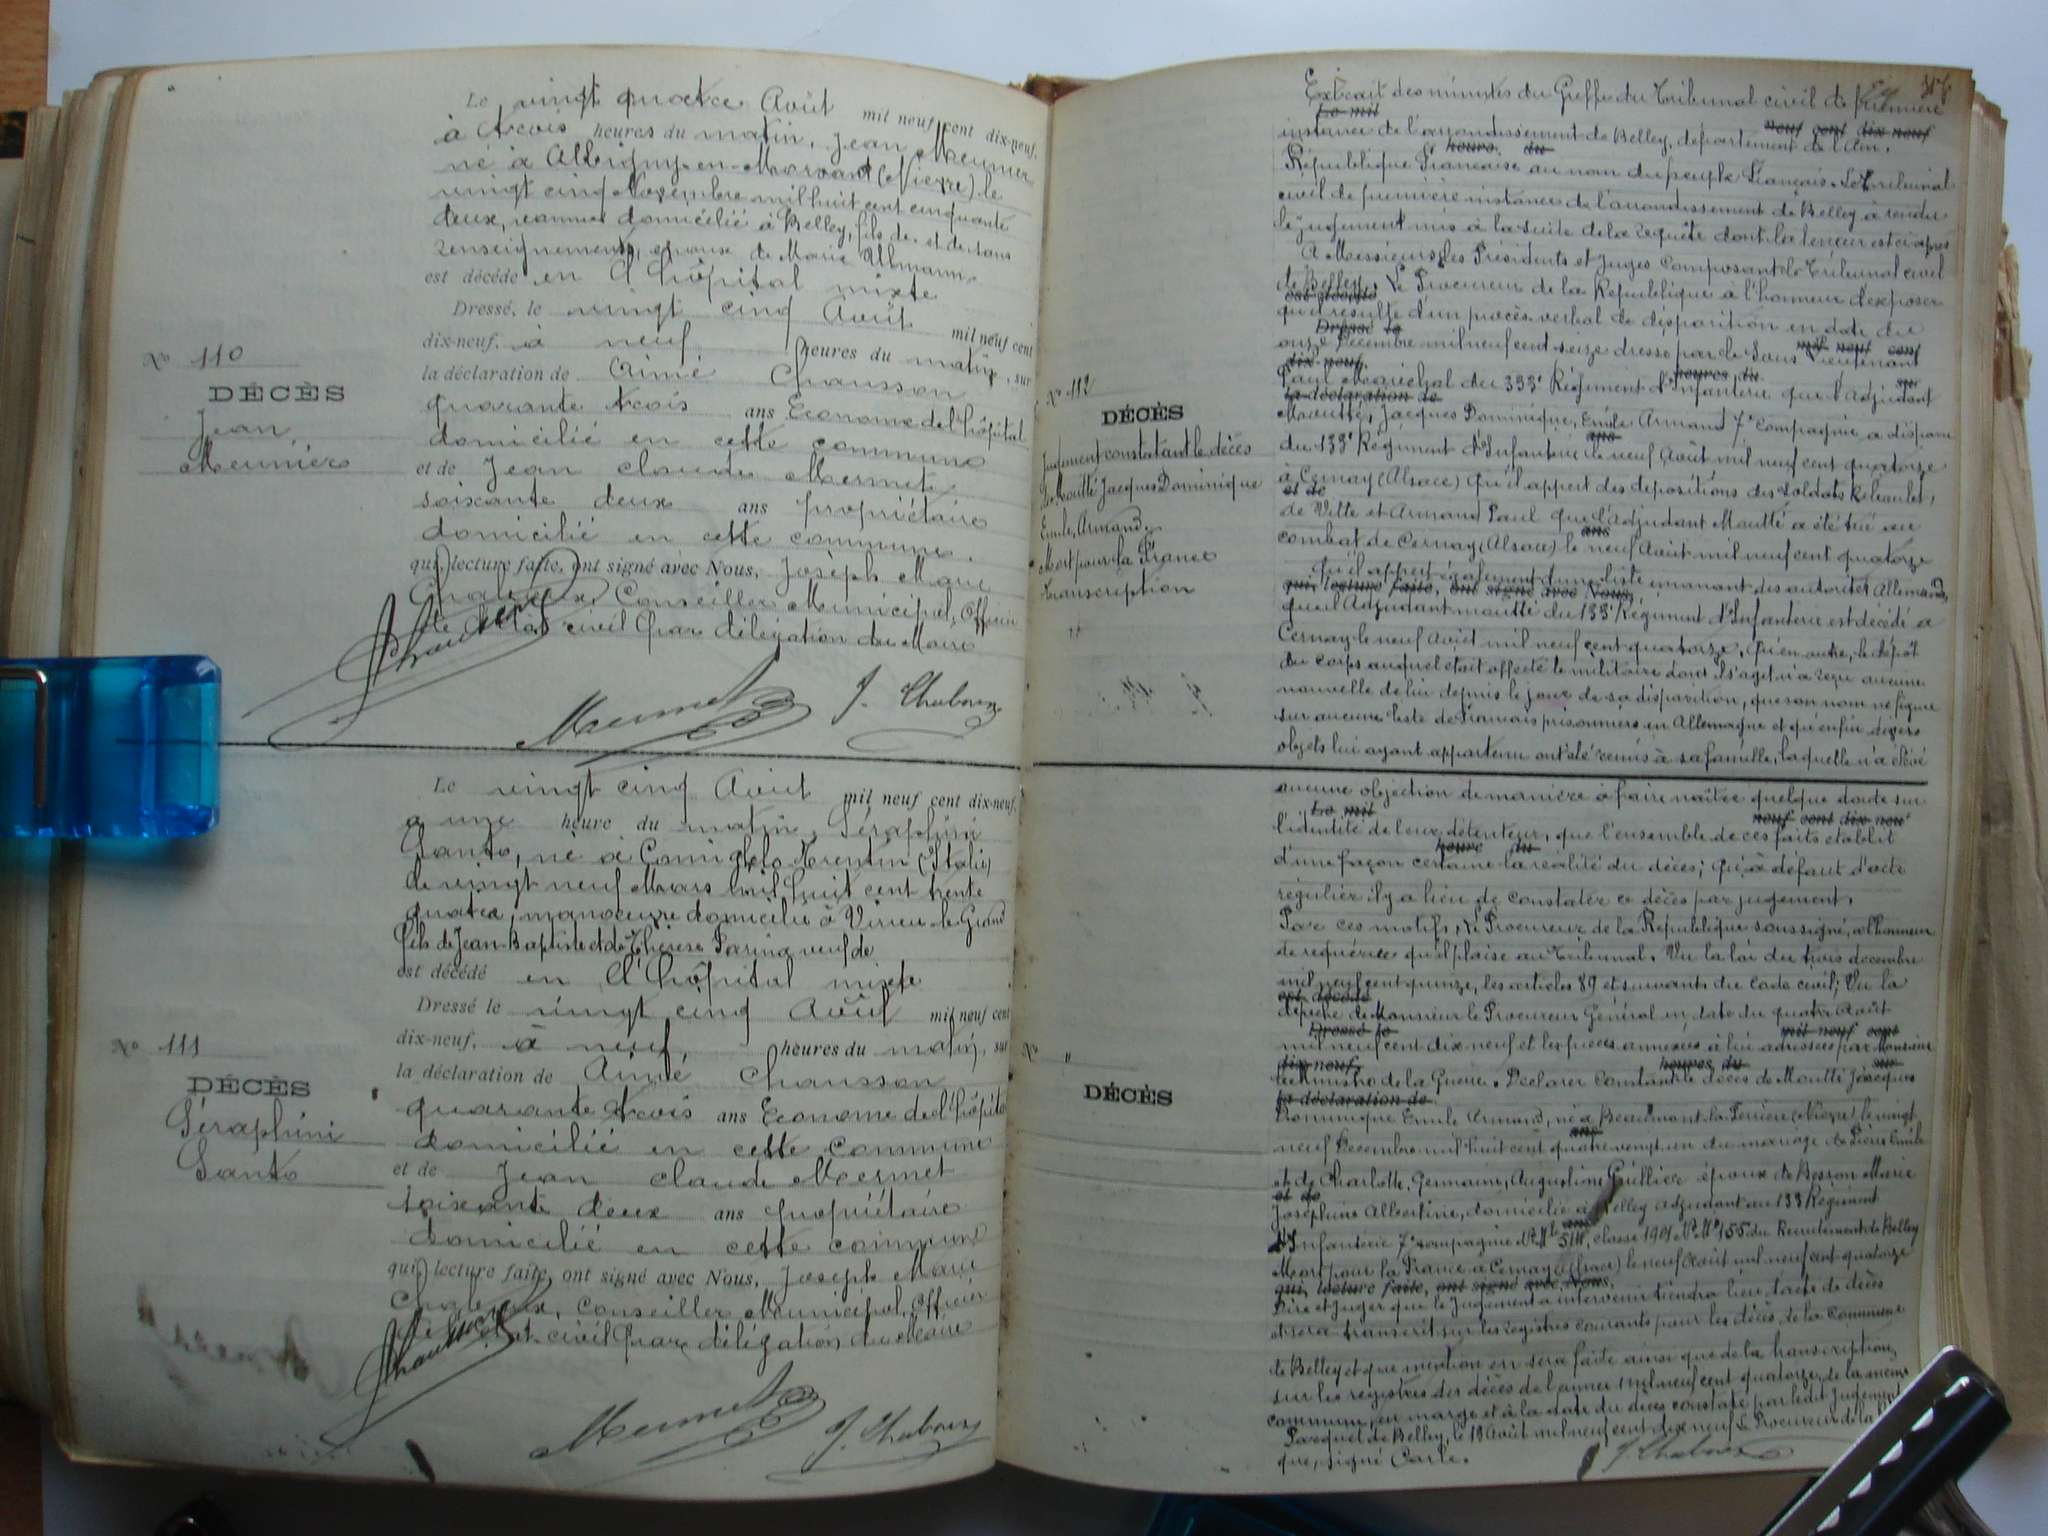 Le vingt quatre Août mil neuf cent dix-neuf,
à trois heures du matin, Jean Meunier
né à Alligny-en-Morvand (Nièvre) le
vingt cinq Novembre mil huit cent cinquante
deux, domicilié à Belley, fils de et de sans
renseignements, époux de Marie Ullmann
est décédé en l'hôpital mixte
Dressé, le vingt cinq Août mil neuf cent
dix-neuf, à neuf heures du matin, sur
la déclaration de Aimé Chausson
quarante trois ans Econome de l'hôpital
domicilié en cette commune
et de Jean Claude Mermet
soixante deux ans propriétaire
domicilié en cette commune.
qui, lecture faite, ont signé avec Nous, Joseph Marie
Conseiller Municipal, Officier
de l'état civil par délégation du Maire
N° 110
DÉCÈS
Jean
Meunier
Chausson
Mermet
J. Chaboux
Le vingt cinq Août mil neuf cent dix-neuf,
à une heure du matin, Séraphini
Santo, né à Trentin (Italie)
le vingt neuf Mars mil huit cent trente
quatre, manoeuvre domicilié à Virieu-le-Grand
fils de Jean-Baptiste et de Thérèse veuf de
est décédé en l'hôpital mixte
Dressé le vingt cinq Août mil neuf cent
dix-neuf, à neuf heures du matin, sur
la déclaration de Aimé Chausson
quarante trois ans Econome de l'hôpital
domicilié en cette commune
et de Jean Claude Mermet
soixante deux ans propriétaire
domicilié en cette commune
qui, lecture faite, ont signé avec Nous, Joseph Marie
Chaboux, Conseiller Municipal, Officier
de l'état civil par délégation du Maire
N° 111
DÉCÈS
Séraphini
Santo
Chausson
Mermet
J. Chaboux
N° 112
DÉCÈS
Jugement constatant le décès
de Moutté Jacques Dominique
Emile, Armand,
Mort pour la France
Transcription
Extrait des minutes du Greffe du Tribunal civil de première
instance de l'arrondissement de Belley, département de l'Ain.
République Française au nom du peuple Français. Le tribunal
civil de première instance de l'arrondissement de Belley à rendu
le jugement mis à la suite de la requête dont la teneur est ci après
A Messieurs les Présidents et Juges Composant le Tribunal civil
de Belley. Le Procureur de la République à l'honneur d'exposer
qu'il résulte d'un procès verbal de disparition en date du
onze Décembre mil neuf cent seize dressé par le Sous Lieutenant
Paul Maréchal du 333e Régiment d'Infanterie que l'Adjudant
Moutté, Jacques Dominique, Emile Armand 7e Compagnie a disparu
du 133e Régiment d'Infanterie le neuf Août mil neuf cent quatorze
à Cernay (Alsace) qu'il appert des dépositions des Soldats
de Vitte et Armand Paul que l'adjudant Moutté a été tué au
combat de Cernay (Alsace) le neuf Août mil neuf cent quatorze
qu'il appert également d'une liste émanant des autorités Allemandes
que l'Adjudant moutté du 133e Régiment d'Infanterie est décédé à
Cernay le neuf Août mil neuf cent quatorze. Qu'en outre, le dépôt
du corps auquel était affecté le militaire dont il s'agit n'a reçu aucune
nouvelle de lui depuis le jour de sa disparition, que son nom ne figure
sur aucune liste de Français prisonniers en Allemagne et qu'enfin divers
objets lui ayant appartenu ont été remis à sa famille, laquelle n'a élevé
aucune objection de manière à faire naître quelque doute sur
l'identité de leur détenteur, que l'ensemble de ces faits établit
d'une façon certaine la réalité du décès; qu'à défaut d'acte
régulier il y a lieu de constater ce décès par jugement.
Par ces motifs, Le Procureur de la République soussigné, a l'honneur
de requérir qu'il plaise au Tribunal. Vu la loi du trois décembre
mil neuf cent quinze, les articles 89 et suivants du Code civil; Vu la
dépêche de Monsieur le Procureur Général en date du quatre Août
mil neuf cent dix neuf et les pièces annexées à lui adressées par Monsieur
le Ministre de la Guerre. Déclarer Constant le décès de Moutté Jacques
Dominique Emile Armand, né à Beaumont-la-Ferrière (Nièvre) le vingt
neuf Décembre mil huit cent quatre vingt un du mariage de Pierre Emile
et de Charlotte, Germaine, Augustine époux de Besson Marie
Joséphine Albertine, domicilié à Belley adjudant au 133 Régiment
d'Infanterie 7e compagnie classe 1901 155 du Recrutement de Belley
Mort pour la France à Cernay (Alsace) le neuf Août mil neuf cent quatorze
Dire et Juger que le Jugement à intervenir tiendra lieu d'acte de décès
et sera transcrit sur les registres courants pour les décès, de la commune
de Belley et que mention en sera faite ainsi que de la transcription,
sur les registres des décès de l'année mil neuf cent quatorze, de la même
commune, en marge et à la date du décès constaté par ledit Jugement
Parquet de Belley, le 19 Août mil neuf cent dix neuf Le Procureur de la
que, signé Carle.
J. Chaboux
N° "
DÉCÈS